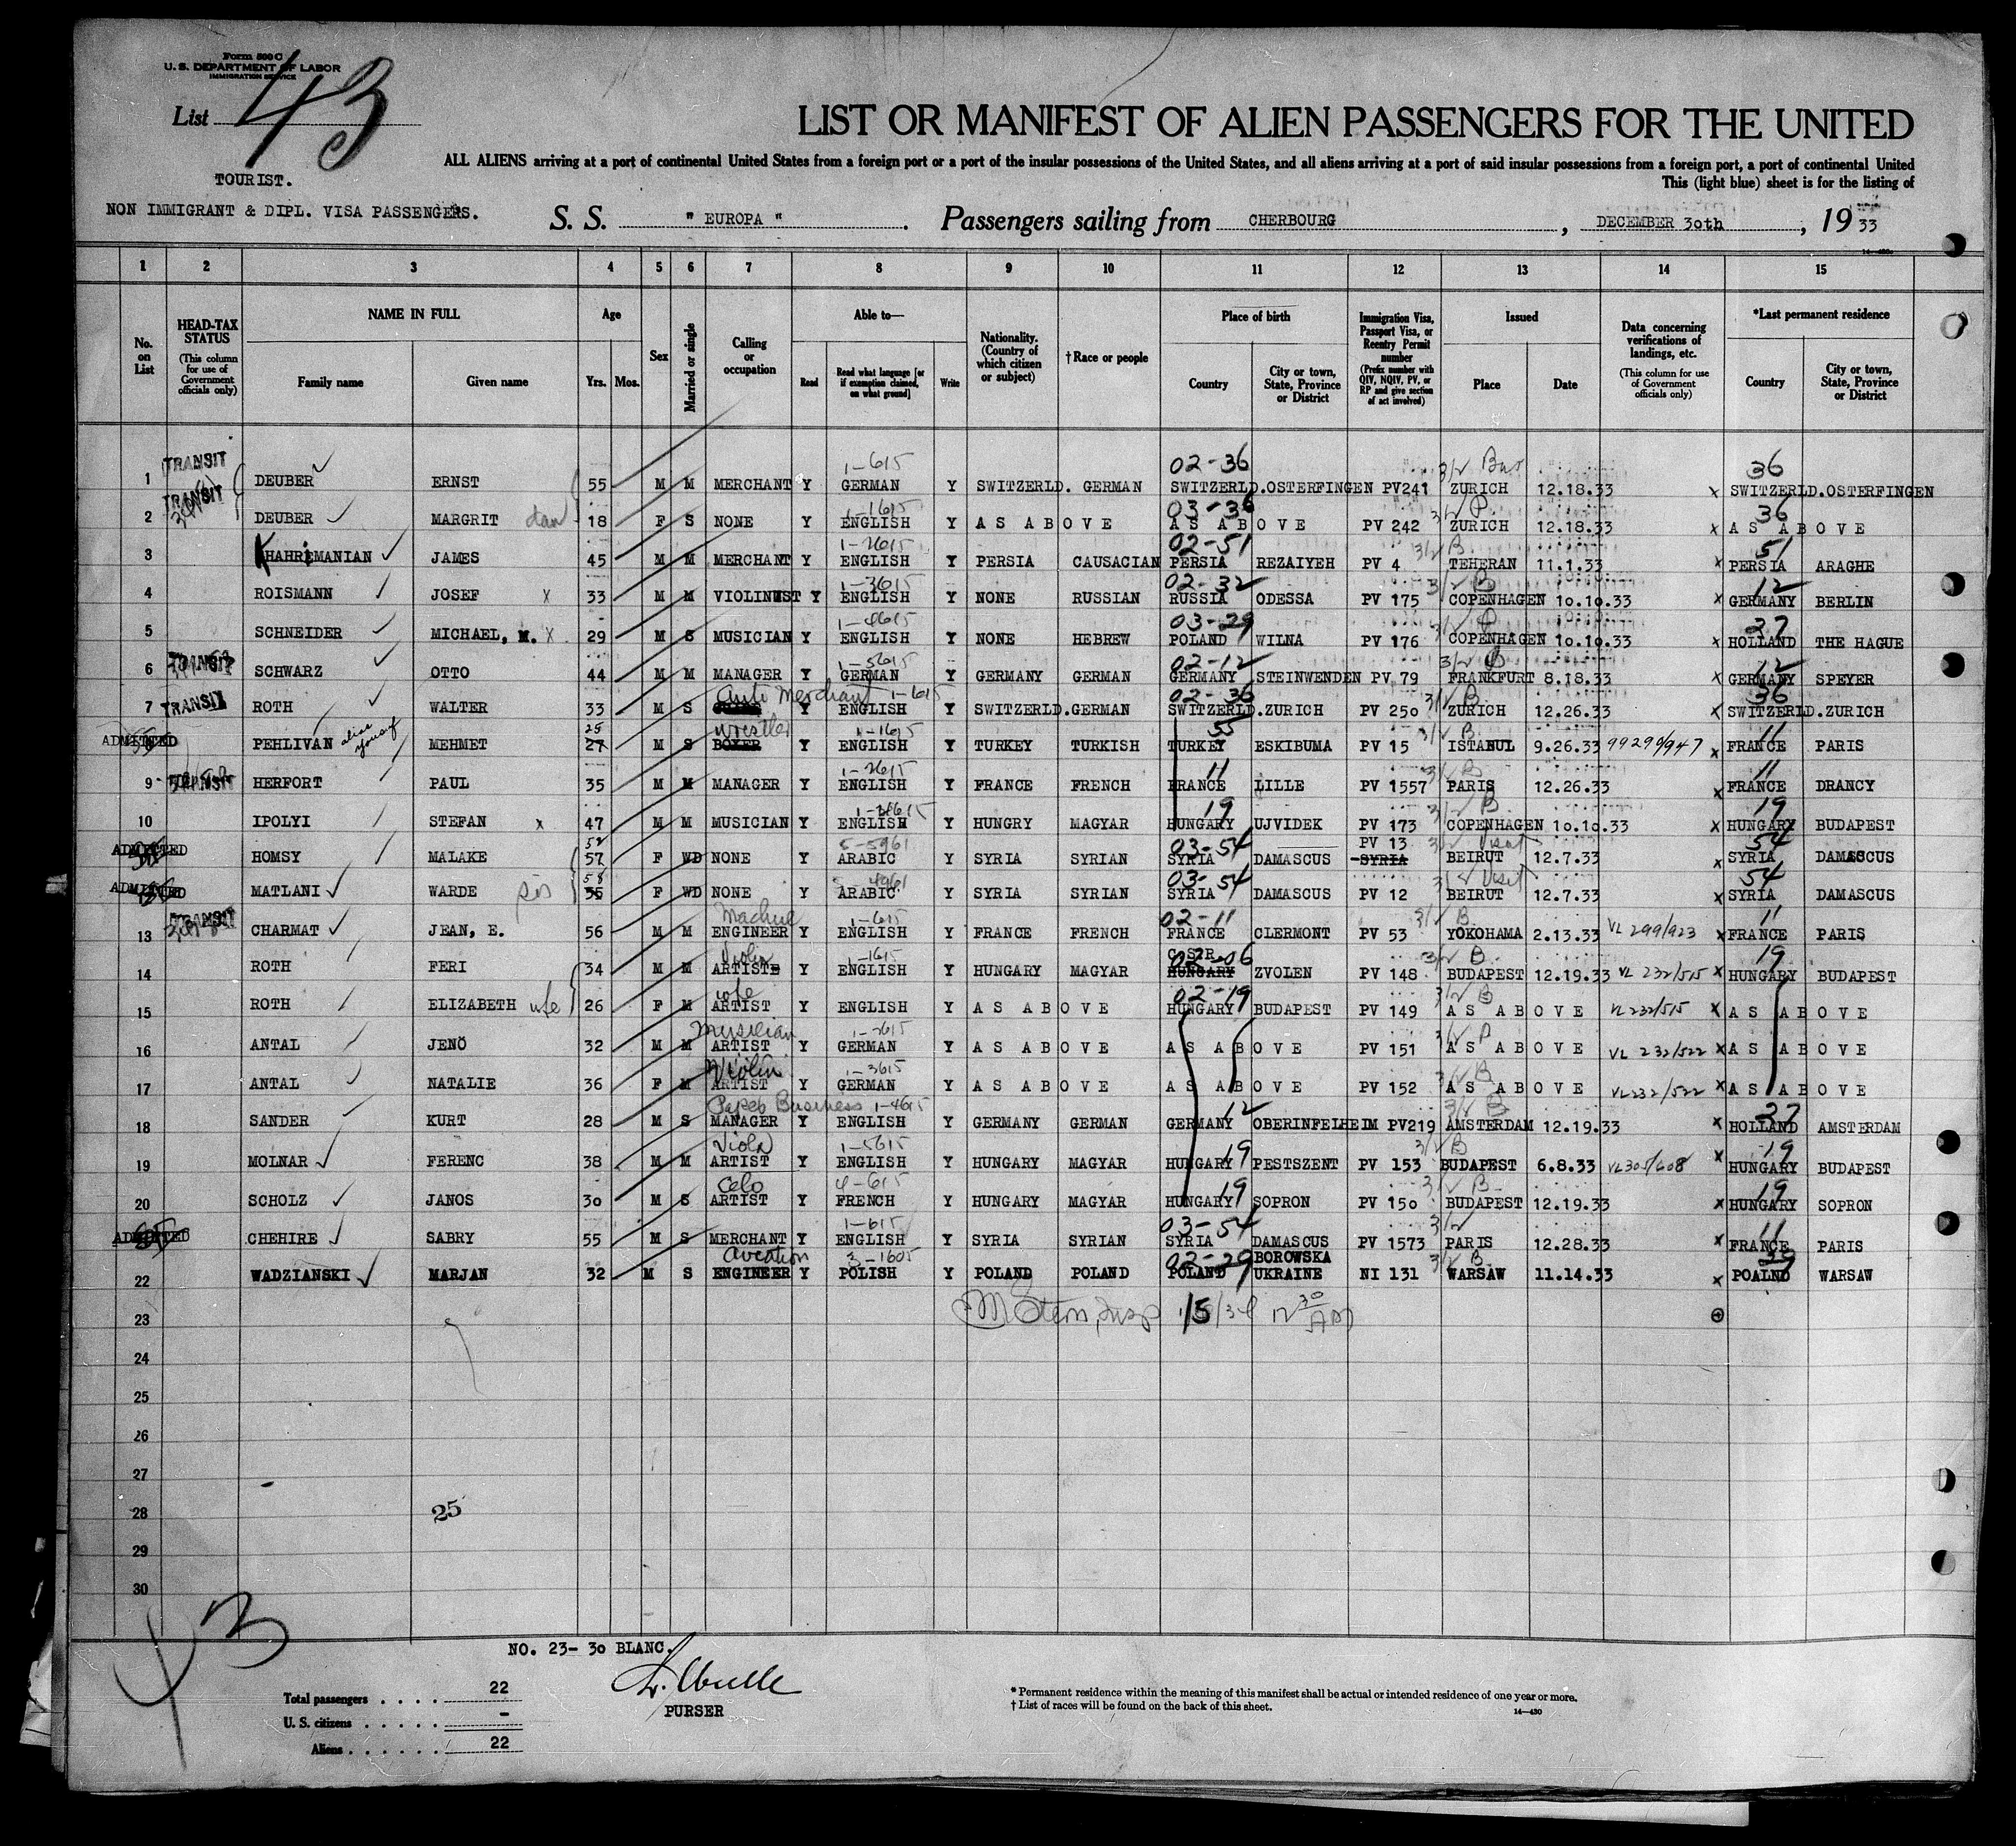 Form 500 C
U. S. DEPARTMENT OF LABOR
IMMIGRATION SERVICE
List 43
LIST OR MANIFEST OF ALIEN PASSENGERS FOR THE UNITED
ALL ALIENS arriving at a port of continental United States from a foreign port or a port of the insular possessions of the United States, and all aliens arriving at a port of said insular possessions from a foreign port, a port of continental United
TOURIST.
This (light blue) sheet is for the listing of
NON IMMIGRANT & DIPL. VISA PASSENGERS.
S. S. " EUROPA " . Passengers sailing from CHERBOURG , DECEMBER 30th , 19 33
1 2 3 4 5 6 7 8 9 10 11 12 13 14 15
No. on List
HEAD-TAX STATUS (This column for use of Government officials only)
NAME IN FULL Family name Given name
Age Yrs. Mos.
Sex
Married or single
Calling or occupation
Able to— Read Read what language [or if exemption claimed, on what ground] Write
Nationality. (Country of which citizen or subject)
† Race or people
Place of birth Country City or town, State, Province or District
Immigration Visa, Passport Visa, or Reentry Permit number (Prefix number with QIV, NQIV, PV, or RP and give section of act involved)
Issued Place Date
Data concerning verifications of landings, etc. (This column for use of Government officials only)
*Last permanent residence Country City or town, State, Province or District
TRANSIT 1-615 02-36 36
1 DEUBER ERNST 55 M M MERCHANT Y GERMAN Y SWITZERLD. GERMAN SWITZERLD. OSTERFINGEN PV241 ZURICH 12.18.33 x SWITZERLD. OSTERFINGEN
TRANSIT 1-1615 03-36 36
2 DEUBER MARGRIT dau 18 F S NONE Y ENGLISH Y AS ABOVE AS ABOVE PV 242 ZURICH 12.18.33 x AS ABOVE
1-2615 02-51 51
3 KHAHRIMANIAN JAMES 45 M M MERCHANT Y ENGLISH Y PERSIA CAUSACIAN PERSIA REZAIYEH PV 4 TEHERAN 11.1.33 x PERSIA ARAGHE
1-3615 02-32 12
4 ROISMANN JOSEF x 33 M M VIOLINIST Y ENGLISH Y NONE RUSSIAN RUSSIA ODESSA PV 175 COPENHAGEN 10.10.33 x GERMANY BERLIN
1-4615 03-29 27
5 SCHNEIDER MICHAEL, M. x 29 M S MUSICIAN Y ENGLISH Y NONE HEBREW POLAND WILNA PV 176 COPENHAGEN 10.10.33 x HOLLAND THE HAGUE
TRANSIT 1-5615 02-12 12
6 SCHWARZ OTTO 44 M M MANAGER Y GERMAN Y GERMANY GERMAN GERMANY STEINWENDEN PV 79 FRANKFURT 8.18.33 x GERMANY SPEYER
TRANSIT Auto Merchant 1-615 02-36 36
7 ROTH WALTER 33 M S Y ENGLISH Y SWITZERLD. GERMAN SWITZERLD. ZURICH PV 250 ZURICH 12.26.33 x SWITZERLD. ZURICH
ADMITTED 25 wrestler 1-1615 55 11
PEHLIVAN alias Yousif MEHMET 27 M S BOXER Y ENGLISH Y TURKEY TURKISH TURKEY ESKIBUMA PV 15 ISTANUL 9.26.33 99290/947 x FRANCE PARIS
TRANSIT 1-2615 11 11
9 HERFORT PAUL 35 M M MANAGER Y ENGLISH Y FRANCE FRENCH FRANCE LILLE PV 1557 PARIS 12.26.33 x FRANCE DRANCY
19 19
10 IPOLYI STEFAN x 47 M M MUSICIAN Y ENGLISH Y HUNGRY MAGYAR HUNGARY UJVIDEK PV 173 COPENHAGEN 10.10.33 x HUNGARY BUDAPEST
ADMITTED 5-5961 03-54 PV 13 Visit 54
HOMSY MALAKE 57 F WD NONE Y ARABIC Y SYRIA SYRIAN SYRIA DAMASCUS SYRIA BEIRUT 12.7.33 x SYRIA DAMASCUS
ADMITTED 58 03-54 Visit 54
MATLANI WARDE sis 55 F WD NONE Y ARABIC Y SYRIA SYRIAN SYRIA DAMASCUS PV 12 BEIRUT 12.7.33 x SYRIA DAMASCUS
TRANSIT Machine 1-615 02-11 11
13 CHARMAT JEAN, E. 56 M M ENGINEER Y ENGLISH Y FRANCE FRENCH FRANCE CLERMONT PV 53 YOKOHAMA 2.13.33 VL 299/923 x FRANCE PARIS
Violin 1-1615 02-06 19
14 ROTH FERI 34 M M ARTIST Y ENGLISH Y HUNGARY MAGYAR HUNGARY ZVOLEN PV 148 BUDAPEST 12.19.33 VL 232/515 x HUNGARY BUDAPEST
wfe 02-19
15 ROTH ELIZABETH wfe 26 F M ARTIST Y ENGLISH Y AS ABOVE HUNGARY BUDAPEST PV 149 AS ABOVE VL 232/515 x AS ABOVE
Musician 1-2615
16 ANTAL JENÖ 32 M M ARTIST Y GERMAN Y AS ABOVE AS ABOVE PV 151 AS ABOVE VL 232/522 x AS ABOVE
Violin 1-3615
17 ANTAL NATALIE 36 F M ARTIST Y GERMAN Y AS ABOVE AS ABOVE PV 152 AS ABOVE VL 232/522 x AS ABOVE
Paper Business 1-4615 12 27
18 SANDER KURT 28 M S MANAGER Y ENGLISH Y GERMANY GERMAN GERMANY OBERINFELHEIM PV219 AMSTERDAM 12.19.33 x HOLLAND AMSTERDAM
Viola 1-5615 19 19
19 MOLNAR FERENC 38 M M ARTIST Y ENGLISH Y HUNGARY MAGYAR HUNGARY PESTSZENT PV 153 BUDAPEST 6.8.33 VL 305/608 x HUNGARY BUDAPEST
Celo 4-615 19 19
20 SCHOLZ JANOS 30 M S ARTIST Y FRENCH Y HUNGARY MAGYAR HUNGARY SOPRON PV 150 BUDAPEST 12.19.33 x HUNGARY SOPRON
ADMITTED 1-615 03-54 11
CHEHIRE SABRY 55 M S MERCHANT Y ENGLISH Y SYRIA SYRIAN SYRIA DAMASCUS PV 1573 PARIS 12.28.33 x FRANCE PARIS
aviation 3-1605 02-29 BOROWSKA 29
22 WADZIANSKI MARJAN 32 M S ENGINEER Y POLISH Y POLAND POLAND POLAND UKRAINE NI 131 WARSAW 11.14.33 x POALND WARSAW
23 M Stern, Insp 12 30 AM
24
25
26
27
28 25
29
30
43
NO. 23- 30 BLANC.
Total passengers . . . . 22
U. S. citizens . . . . . -
Aliens . . . . . . 22
PURSER
* Permanent residence within the meaning of this manifest shall be actual or intended residence of one year or more.
† List of races will be found on the back of this sheet.
14—430